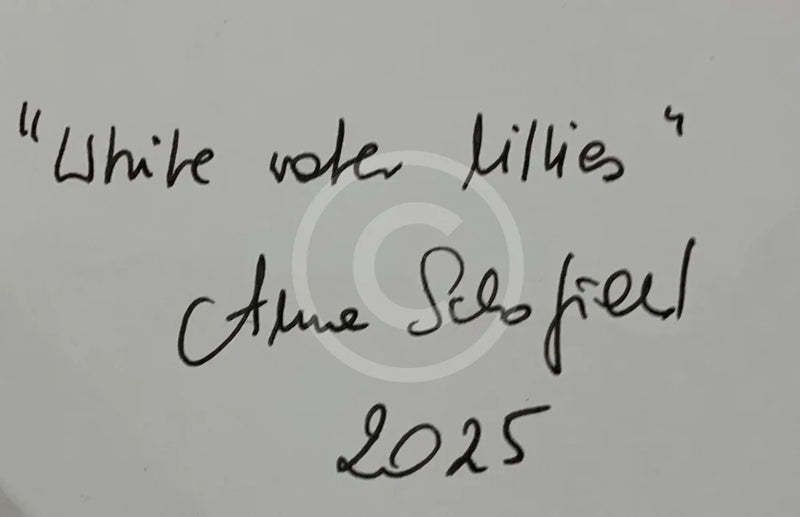 "White water lillies"
Anne Schofield
2025